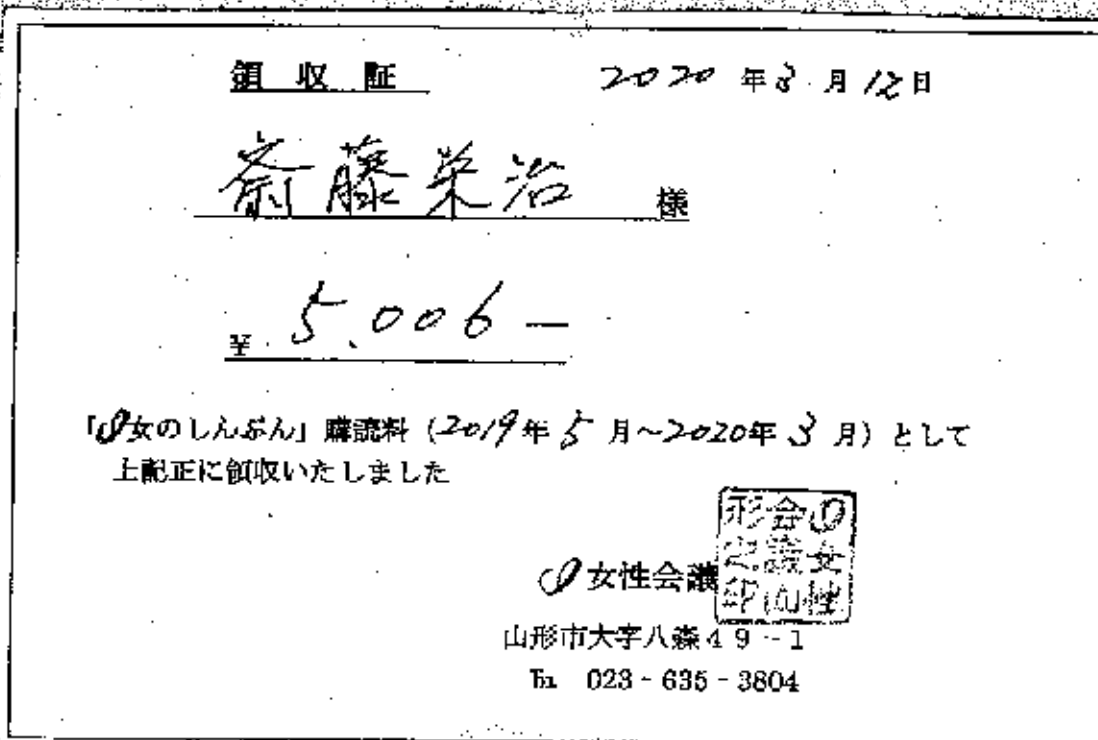 領収証 2020年3月12日
斎藤栄治 様
¥5,006―
「I女のしんぶん」購読料(2019年5月~2020年3月)として
上記正に領収いたしました
I女性会議
I女性会議山形之印
山形市大字八森49-1
℡ 023-635-3804